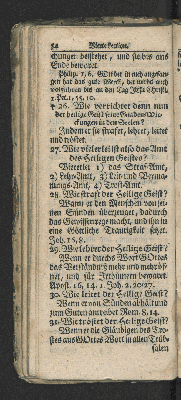 52
chinger bestehet, und sie bis ans
Ende bewahret.
Philip. 1, 6. GOtt der in euch angefan-
gen hat das gute Werck, der wird auch
vollführen bis an den Tag JEsu Christi.
1. Pet. 1, 5. 10.
† 26. Wie verrichtet denn nun
der heilige Geist seine Gnaden-Wir-
ckungen in den Seelen?
Indem er sie strafet, lehret, leitet
und tröstet.
27. Wie vielerlei ist also das Amt
des Heiligen Geistes?
Viererlei 1) das Straf-Amt,
2) Lehr-Amt, 3)
nungs-Amt, 4) Trost-Amt.
28. Wie straft der Heilige Geist?
Wann er den Menschen von sei-
nen Sünden überzeuget, dadurch
das Gewissen rege macht, und sie in
eine Göttliche Traurigkeit setzet.
Joh. 15, 8.
29. Wie lehret der Heilige Geist?
Wenn er durchs Wort GOttes
das Verständnis mehr und mehr öf-
net, und für Irthümern bewahret.
Apost. 16, 14. 1 Joh. 2, 20. 27.
30. Wie leitet der Heilige Geist?
Wenn er von Sünden abhält und
zum Guten antreibet Rom. 8, 14.
31. Wie tröstet der Heilige Geist?
Wenn er die Gläubigen des Tro-
stes aus GOttes Wort in allen Trüb-
salen